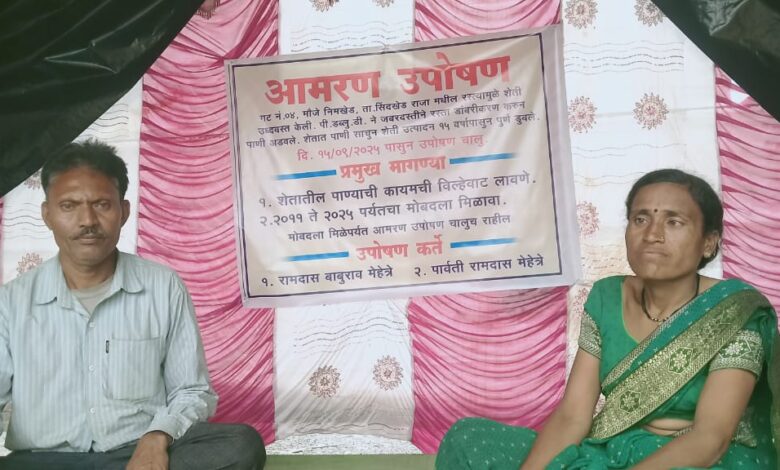 आमरण उपोषण
गट नं.०४, मौजे निमखेड, ता.सिंदखेड राजा मधील रस्त्यामुळे शेती
उध्वस्त केली. पी.डब्लु.डी. ने जबरदस्तीने रस्ता डांबरीकरण करून
पाणी अडवले. शेतात पाणी साचुन शेती उत्पादन १५ वर्षापासुन पुर्ण डुबले.
दि. १५/०९/२०२५ पासुन उपोषण चालु
प्रमुख मागण्या
१. शेतातील पाण्याची कायमची विल्हेवाट लावणे.
२.२०११ ते २०२५ पर्यतचा मोबदला मिळावा.
मोबदला मिळेपर्यंत आमरण उपोषण चालुच राहील
उपोषण कर्ते
१. रामदास बाबुराव मेहेत्रे २. पार्वती रामदास मेहेत्रे